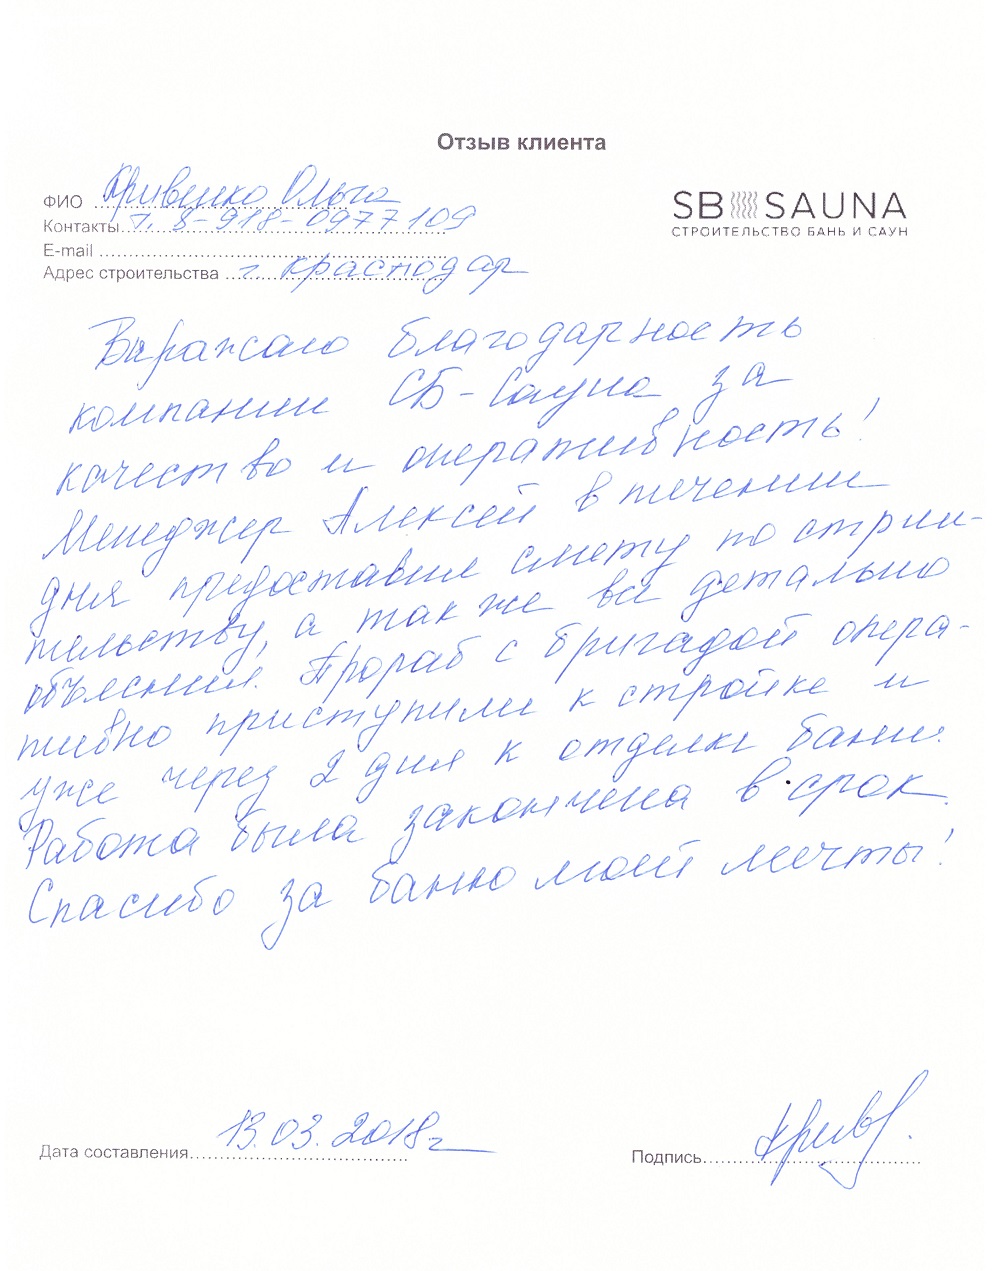 Отзыв клиента
ФИО Кривенко Ольга
Контакты т. 8-918-0977109
SB SAUNA
СТРОИТЕЛЬСТВО БАНЬ И САУН
E-mail
Адрес строительства г. Краснодар
Выражаю благодарность
компании СБ-Сауна за
качество и оперативность!
Менеджер Алексей в течении
дня предоставил смету по строи-
тельству, а так же все детально
объяснил. Прораб с бригадой опера-
тивно приступили к стройке и
уже через 2 дня к отделке бани.
Работа была закончена в срок.
Спасибо за баню моей мечты!
Дата составления 13.03.2018г
Подпись Крив